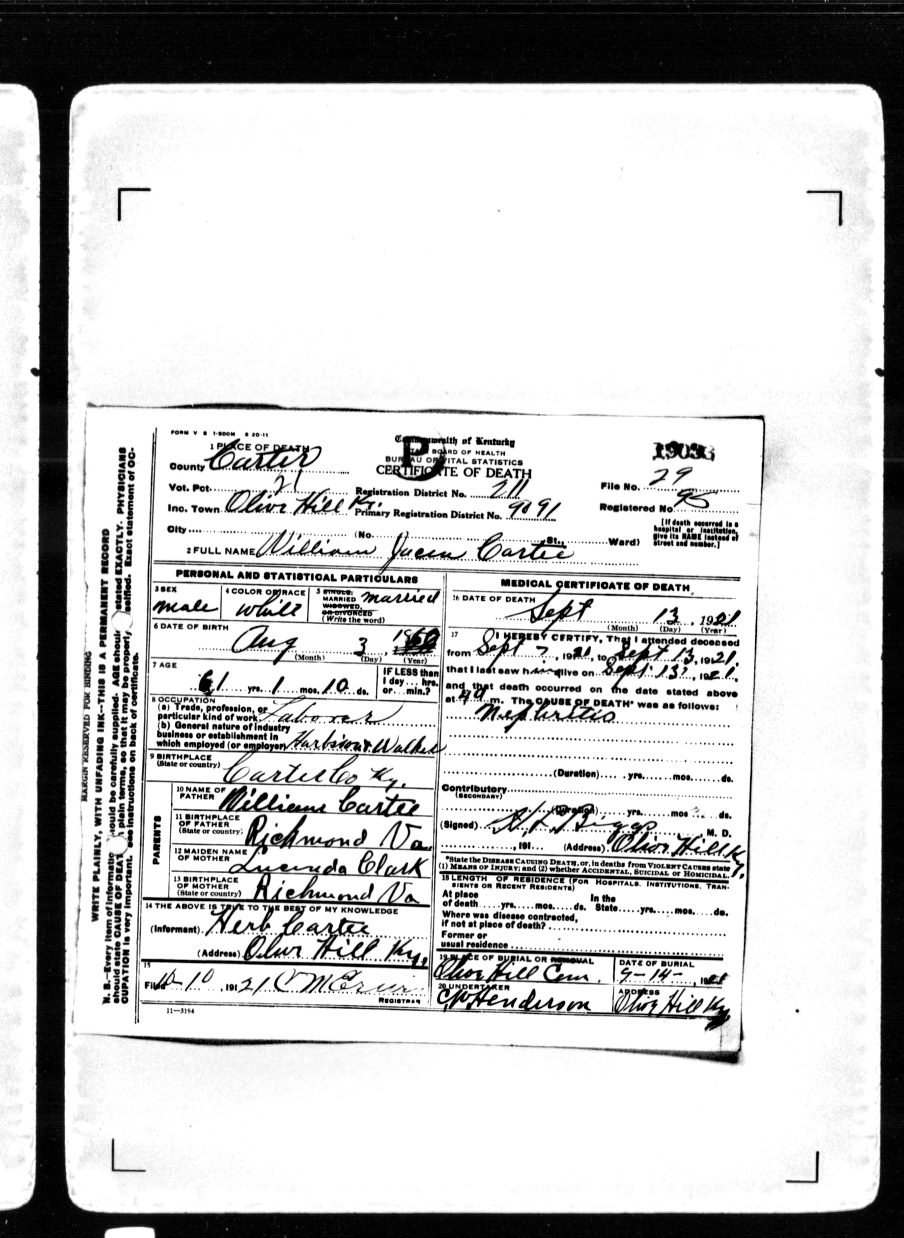 FORM V S 1-500M 8 20-11
Commonwealth of Kentucky
STATE BOARD OF HEALTH
BUREAU OF VITAL STATISTICS
CERTIFICATE OF DEATH
1 PLACE OF DEATH
County Carter
Vot. Pct. 21 Registration District No. 211
Inc. Town Olive Hill Ky. Primary Registration District No. 9091
City (No. St., Ward)
19036
File No. 29
Registered No 95
[If death occurred in a hospital or institution, give its NAME instead of street and number.]
2 FULL NAME William Cartee
PERSONAL AND STATISTICAL PARTICULARS
3 SEX male
4 COLOR OR RACE white
5 SINGLE, MARRIED WIDOWED, OR DIVORCED (Write the word) married
6 DATE OF BIRTH
Aug 3 1860
(Month) (Day) (Year)
7 AGE
61 yrs. 1 mos. 10 ds.
IF LESS than 1 day... hrs. or... min.?
8 OCCUPATION
(a) Trade, profession, or particular kind of work Laborer
(b) General nature of industry
business or establishment in
which employed (or employer) Harbison Walker
9 BIRTHPLACE
(State or country) Carter Co Ky.
PARENTS
10 NAME OF FATHER William Cartee
11 BIRTHPLACE OF FATHER (State or country) Richmond Va
12 MAIDEN NAME OF MOTHER Lucinda Clark
13 BIRTHPLACE OF MOTHER (State or country) Richmond Va
14 THE ABOVE IS TRUE TO THE BEST OF MY KNOWLEDGE
(Informant) Herb Cartee
(Address) Olive Hill Ky.
15
Filed 10-10 191 21
REGISTRAR
11-3184
MEDICAL CERTIFICATE OF DEATH
16 DATE OF DEATH
Sept 13 1921
(Month) (Day) (Year)
17 I HEREBY CERTIFY, That I attended deceased
from Sept 7, 1921, to Sept 13, 1921
that I last saw him alive on Sept 13, 1921,
and that death occurred on the date stated above
at m. The CAUSE OF DEATH* was as follows:
Nephritis
(Duration) yrs. mos. ds.
Contributory
(SECONDARY)
(Duration) yrs. mos. ds.
(Signed) H L Biggs M. D.
, 191 (Address) Olive Hill Ky.
*State the DISEASE CAUSING DEATH, or, in deaths from VIOLENT CAUSES state
(1) MEANS OF INJURY; and (2) whether ACCIDENTAL, SUICIDAL or HOMICIDAL.
18 LENGTH OF RESIDENCE (FOR HOSPITALS, INSTITUTIONS, TRANSIENTS OR RECENT RESIDENTS)
At place of death yrs. mos. ds. In the State yrs. mos. ds.
Where was disease contracted, if not at place of death?
Former or usual residence
19 PLACE OF BURIAL OR REMOVAL
Olive Hill Cem.
DATE OF BURIAL
9-14-, 1921
20 UNDERTAKER
Henderson
ADDRESS
Olive Hill Ky
MARGIN RESERVED FOR BINDING
WRITE PLAINLY, WITH UNFADING INK--THIS IS A PERMANENT RECORD
N. B.--Every item of information should be carefully supplied. AGE should stated EXACTLY. PHYSICIANS
should state CAUSE OF DEATH plain terms, so that it may be properly classified. Exact statement of OC-
CUPATION is very important. See instructions on back of certificate.